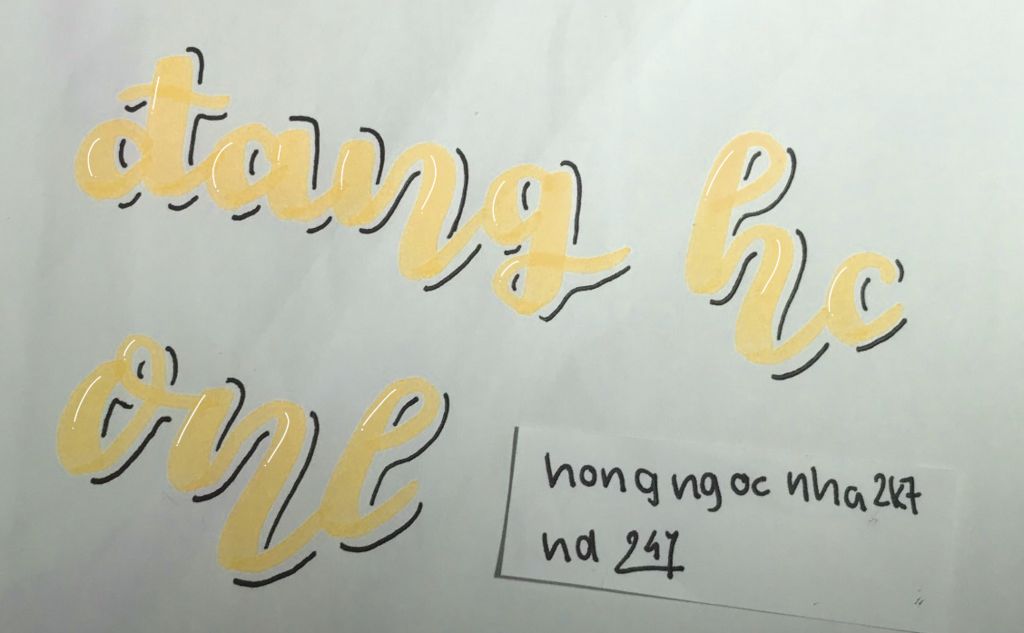 đang hc
onl
hongngoc nha 2k7
nd 247